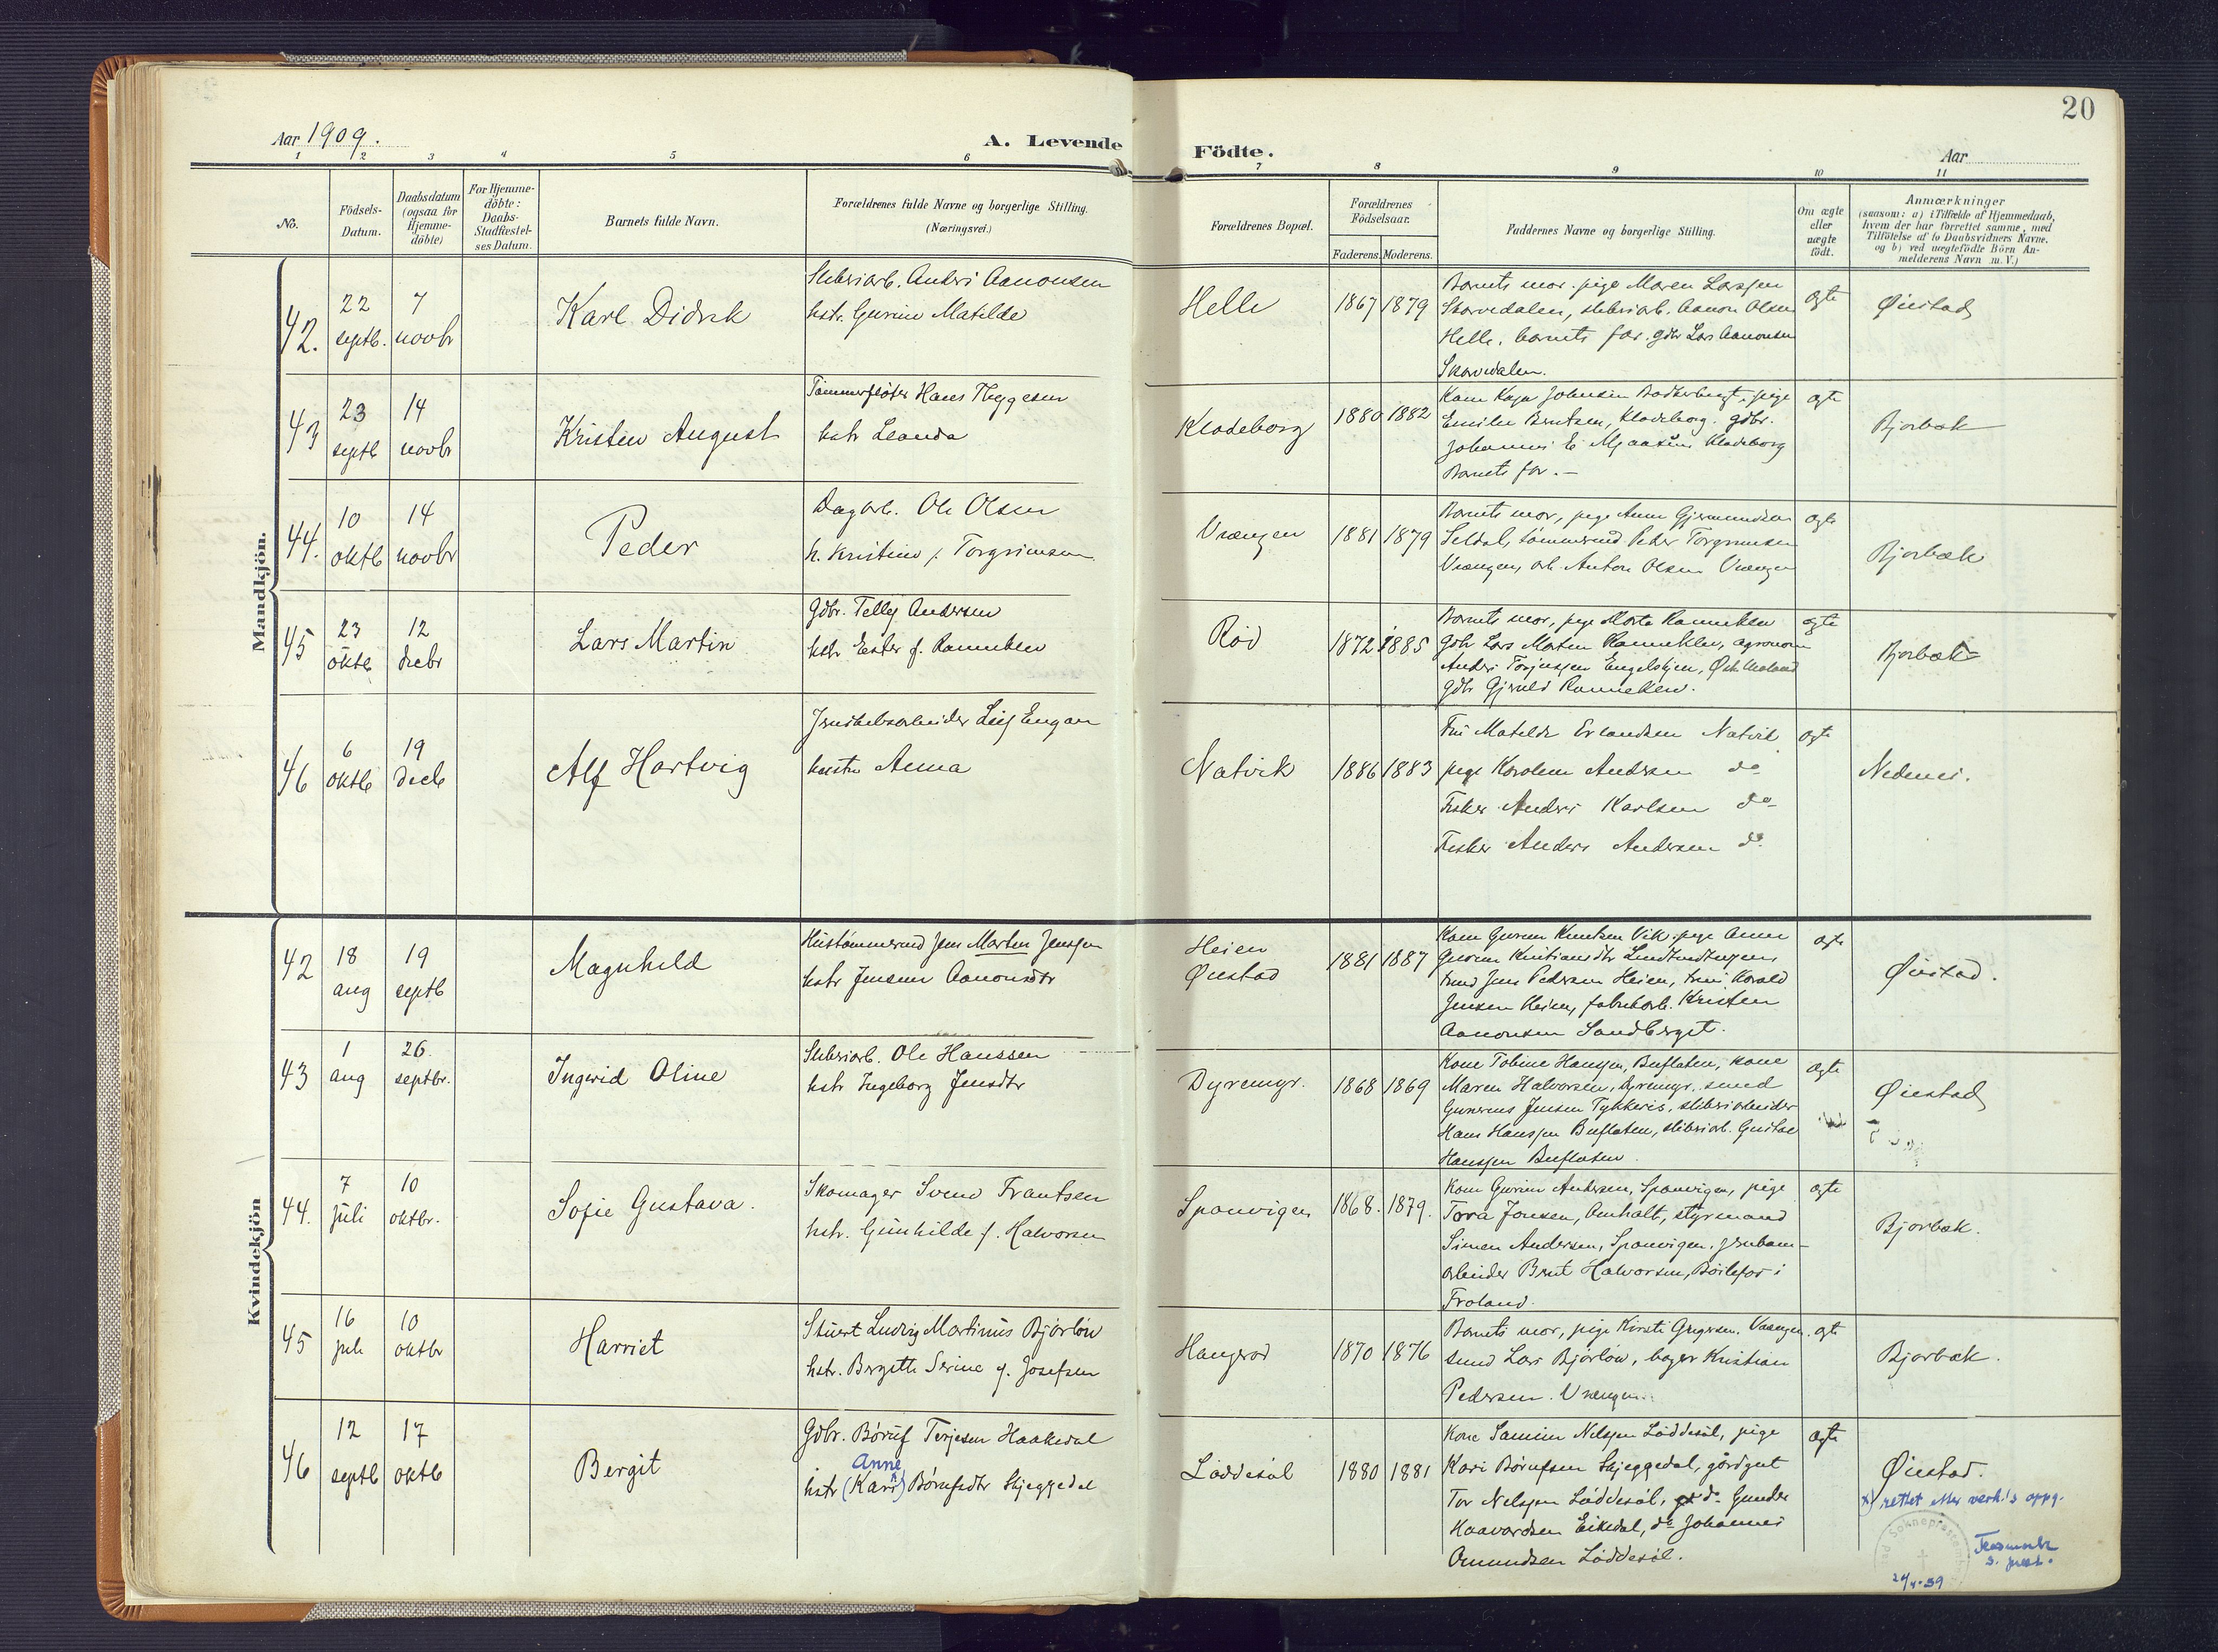 20
Aar 1909.
A. Levende
Födte.
Aar
1 2 3 4 5 6 7 8 9 10 11
No.
Födsels-
Datum.
Daabsdatum
(ogsaa for
Hjemme-
döbte)
For Hjemme-
döbte:
Daabs-
Stadfæstel-
ses Datum.
Barnets fulde Navn.
Forældrenes fulde Navne og borgerlige Stilling.
(Næringsvei.)
Forældrenes Bopæl.
Forældrenes
Födselsaar.
Faderens. Moderens.
Faddernes Navne og borgerlige Stilling.
Om ægte
eller
uægte
födt.
Anmærkninger
(saasom: a) i Tilfælde af Hjemmedaab,
hvem der har forrettet samme, med
Tilföielse af to Daabsvidners Navne,
og b) ved uægtefödte Börn An-
melderens Navn m. V.)
Mandkjön.
42.
22
septb.
7
novbr
Karl Didrik
Sliberiarb. Anders Aanonsen
hstr. Gurine Matilde
Helle
1867 1879
Barnets mor. pige Maren Larsen
Skarvedalen, sliberiarb. Aanon Olsen
Helle, barnets far. gdbr Lars Aanonsen
Skarvedalen.
ægte
Øiestad
43
23
septb
14
novbr
Kristen August
Tømmerfløter Hans Thygesen
hstr Leonda
Kladeborg
1880 1882
Emilie Berntsen, Kladeborg. gdbr.
Johannes E Mjaasund Kladeborg
Barnets far. —
ægte
Bjorbæk
44.
10
oktb
14
novbr
Peder
Dagarb. Ole Olsen
h. Kristine f. Torgrimsen
Vrængen
1881 1879
Barnets mor, pige Anne Gjermundsen
Seldal, tømmermd Peder Torgrimsen
Vrængen, arb. Anton Olsen Vrængen
ægte
Bjorbæk
45
23
oktb
12
decbr
Lars Martin
Gdbr. Tellef Andersen
hstr Ester f. Rannekleiv
Rød
1872 1885
Barnets mor, pige Marte Rannekleiv
gdbr Lars Martin Rannekleiv, agronom
Anders Torjussen Engelskjen, Østre Moland
gdbr Gjeruld Rannekleiv.
ægte
Bjorbæk
46
6
oktb
19
decb
Alf Hartvig
Jernstøberiarbeider Leif Engan
hustru Anna
Natvik
1886 1883
Fru Matilde Erlandsen Natvik
pige Karoline Andersen do
Fisker Anders Karlsen do
Fisker Anders Andersen do
ægte
Nedenes.
Kvindekjön
42
18
aug
19
septb
Magnhild
Hustømmermd Jens Martin Jenssen
hstr Jensine Aanonsdtr
Heien
Øiestad
1881 1887
Kone Gurine Knutsen Vik. pige Anne
Gurine Kristiansdtr
tmd Jens Pedersen Heien, tmd Harald
Jensen Heien, fabrikarb. Kristen
Aanonsen Sandberget.
ægte
Øiestad.
43
1
aug
26.
septbr.
Ingerid Oline
Sliberiarb. Ole Hanssen
hstr Ingeborg Jensdtr
Dyremyr.
1868 1869
Kone Tobine Hanssen, Buflaten, kone
Maren Halvorsen, Dyremyr. smed
Gunerius Jensen Tykkeris, sliberiarbeider
Hans Hanssen Buflaten, sliberiarb. Gustav
Hanssen Buflaten.
ægte
Øiestad
44.
7
juli
10
oktbr.
Sofie Gustava.
Skomager Svend Frantsen
hstr. Gunhilde f. Halvorsen
Spanvigen
1868. 1879.
Kone Gurine Andersen, Spanvigen, pige
Tora Jonsen, Amholt, styrmand
Simen Andersen, Spanvigen, jernban-
arbeider Bernt Halvorsen, Bøilefos i
Froland.
ægte
Bjorbæk.
45
16
juli
10
oktbr
Harriet
Stuert Ludvig Martinius Bjørløw
hstr. Bergitte Serine f. Josefsen
Hangerød
1870 1876
Barnets mor, pige Kirsti Gregersen. Vrængen.
smed Lars Bjørløw, bager Kristian
Pedersen. Vrængen.
ægte
Bjorbæk.
46
12
septb
17
oktb
Bergit
Gdbr. Børuf Terjesen Haakedal
Anne
hstr (Kari x) Børufsdtr Skjeggedal
Løddesøl
1880 1881
Kone Samine Nelssen Løddesøl, pige
Kari Børufsen Skjeggedal, gårdgut
Tor Nelssen Løddesøl, do. Gunder
Haavardsen Eikedal, do Johannes
Omundsen Løddesøl.
ægte
Øiestad.
x) rettet etter verk.'s oppg.
s. prest.
24/4-39